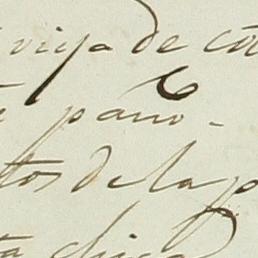 vieja de co
paño-
tos de la p
ta chica